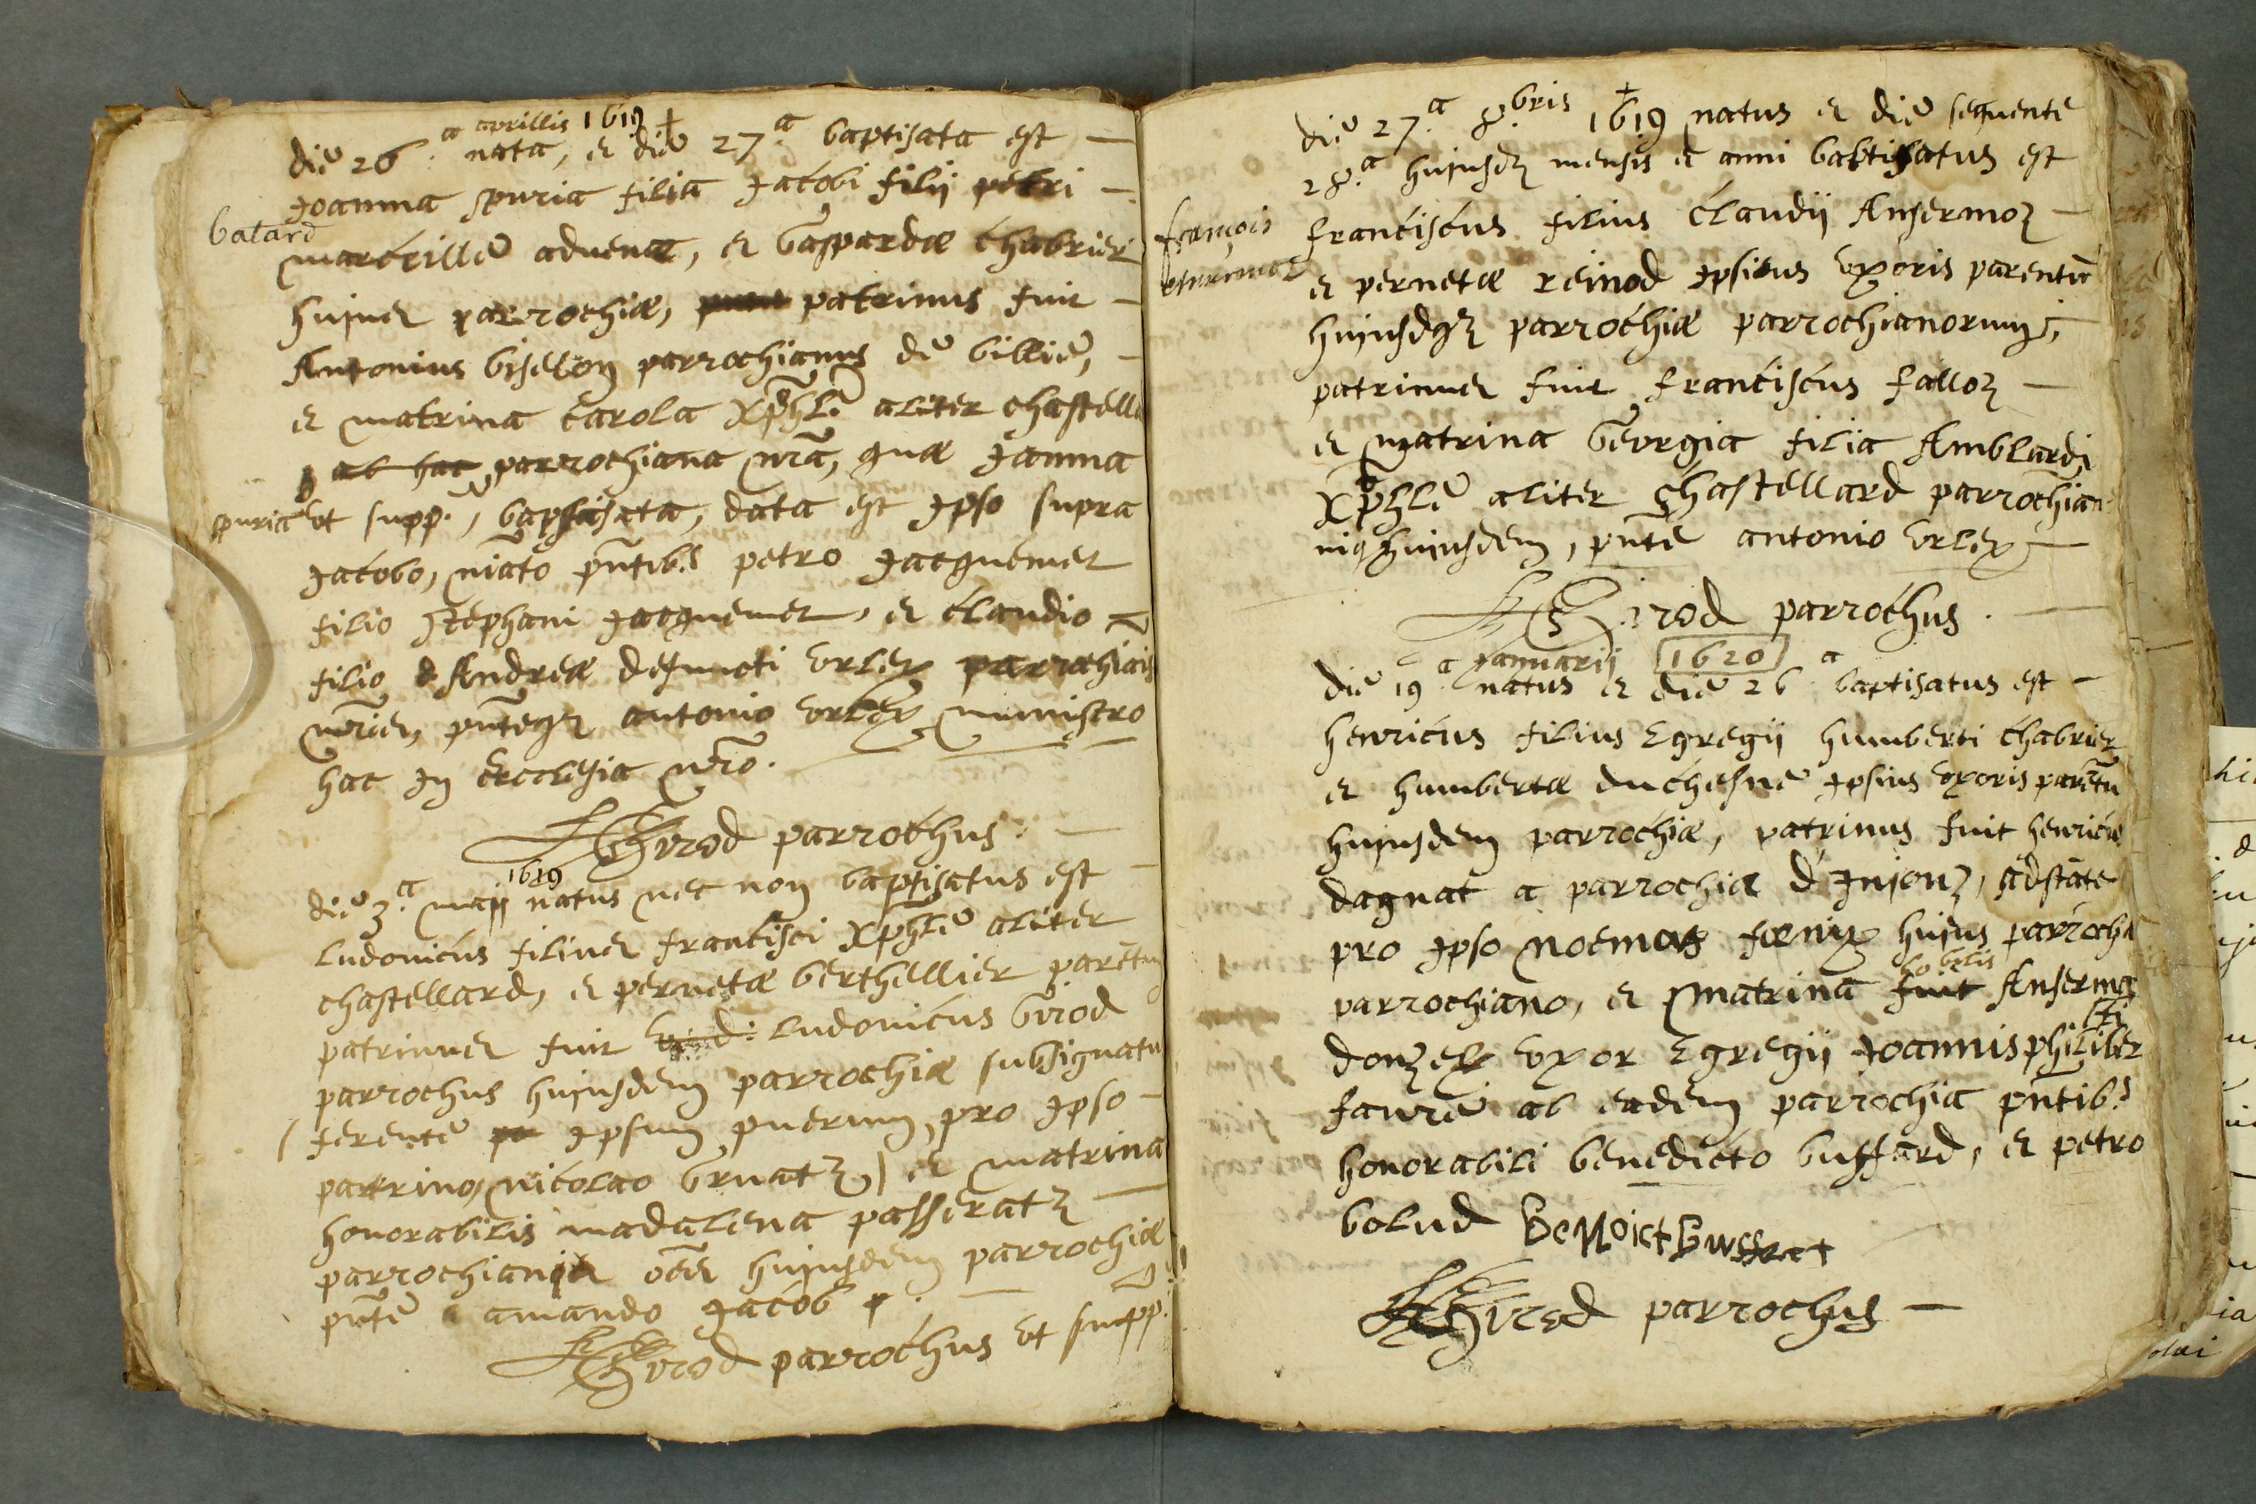 die 26.a aprillis 1619 nata, et die 27.a baptisata est
Joanna spuria filia Jacobi filij petri
batard
marceille advenæ, et Gaspardæ chabrier
hujus parrochiæ, patrinus fuit
Antonius biseton parrochianus de billie,
et matrina carola xp̃hle aliter chastell
ab hac parrochiana nr̃a, quæ Janna
spuria ut supp., baptisata, data est Ipso supra
Jacobo, niãto pñtib.s petro Jacquemet
filio stephani Jacquemet, et claudio
filio Andreæ defuncti Vrlex parrochiais
nr̃is, pñteqz antonio Vrlex ministro
hac In Ecclesia nr̃o.
Girod parrochus.
die 3.a maij 1619 natus nec non baptisatus est
Ludovicus filius francisci xp̃hle aliter
chastellard, et pernetæ berthellier parẽtum
patrinus fuit Ludovicus Girod
parrochus hujusdem parrochiæ subsignatus
(ferente Ipsum puerum, pro Ipso
patrino, nicolao Gruatz) et matrina
honorabilis madalena passeratz
parrochiani oẽs hujusdem parrochiæ
pñte amando Jacob
Girod parrochus ut supp.
die 27.a 8.bris 1619 natus et die sequente
28.a hujusdz mensis et anni baptisatus est
françois
franciscus filius claudij Ansermoz
et pernetæ reinod Ipsius Vxoris parentũ
hujusdqz parrochiæ parrochianorum,
patrinus fuit franciscus falloz
et matrina Georgia filia Amblardi
xp̃hle aliter chastellard parrochian
niq hujusdem, pñte antonio Vrlex
Girod parrochus.
die 19.a Januarij 1620 natus et die 26.a baptisatus est
henricus filius Egregij humberti chabrier
et humbertæ duchesne Ipsius Vxoris parẽtũ
hujusdem parrochiæ, patrinus fuit henricus
dagnat a parrochia d'Injonz, adstãte
pro Ipso noemas fænix hujus parrochiæ
parrochiano, et matrina ho.bilis Anserma
donzel Vxor Egregij Joannis philiberti
faure ab eadem parrochia pñtib.s
honorabili benedicto buffard, et petro
bolud BeNoict Bwssat
Girod parrochus